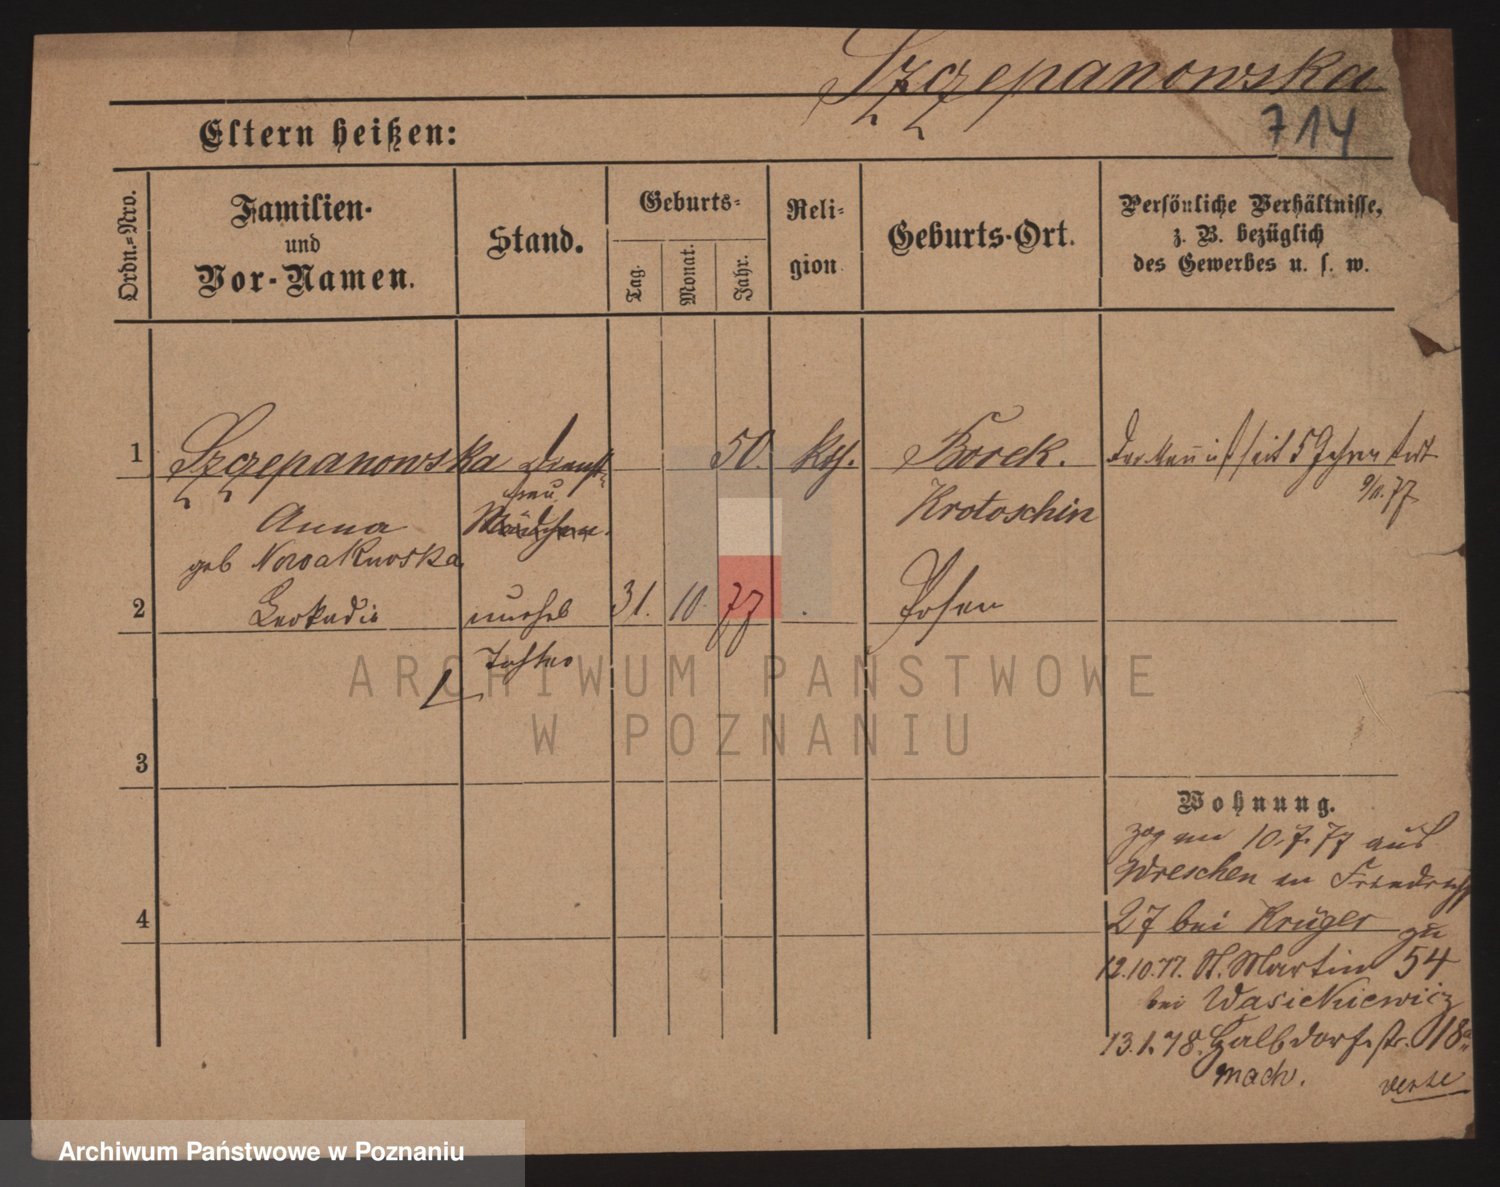 Szczepanowska
714
Eltern heißen:
Ordn.-Nro.
Familien-
und
Vor-Namen.
Stand.
Geburts-
Tag.
Monat.
Jahr.
Reli-
gion
Geburts-Ort.
Persönliche Verhältnisse,
z. B. bezüglich
des Gewerbes u. s. w.
1 Szczepanowska Dienst- 50. kth. Borek. Der Mann ist seit 5 Jahren tot
9/11.77
frau
Anna Mädchen. Krotoschin
geb Nowakowska
2 Leokadia unehel 31. 10. 77 . Posen
Tochter
3
4
Wohnung.
zog am 10.7.77 aus
Wreschen in Friedrichst
27 bei Krüger zu
12.10.77. St. Martin 54
bei Wasickiewicz
13.1.78. Halbdorfstr. 18a
verte
ARCHIWUM PAŃSTWOWE
W POZNANIU
Archiwum Państwowe w Poznaniu